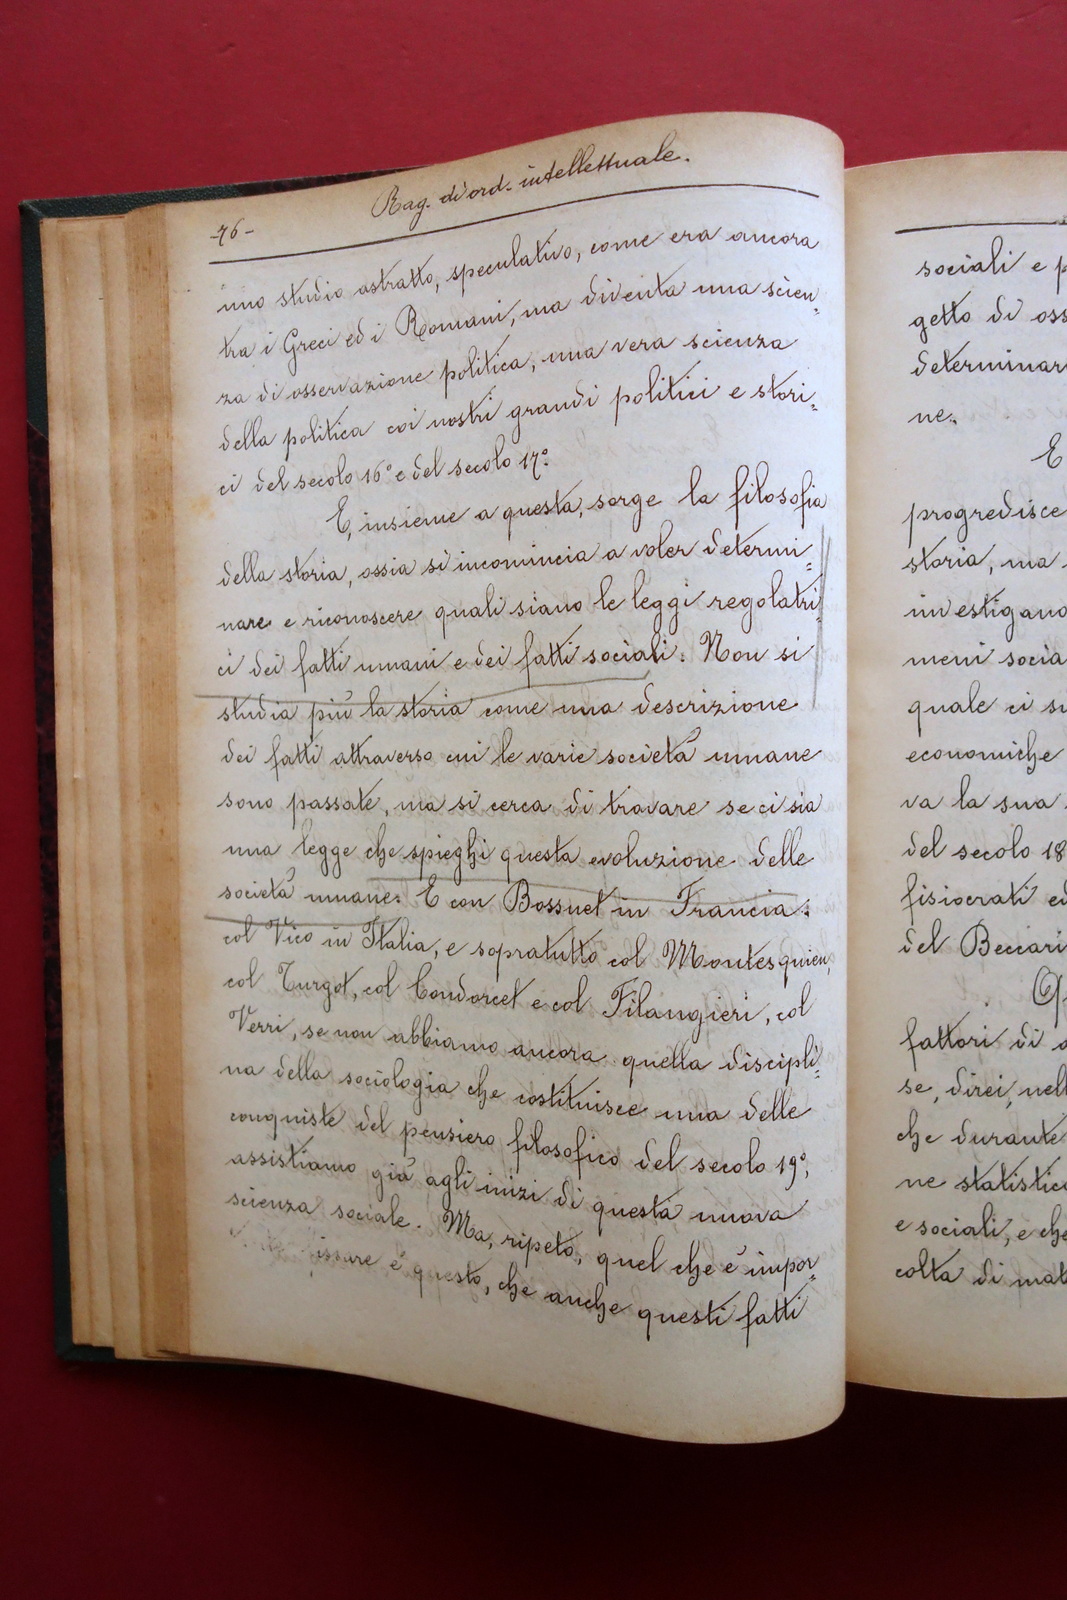 Rag. di ord. intellettuale.
-76-
uno studio astratto, speculativo, come era ancora
tra i Greci ed i Romani, ma diventa una scien-
za di osservazione politica, una vera scienza
della politica coi nostri grandi politici e stori-
ci del secolo 16° e del secolo 17°.
E, insieme a questa, sorge la filosofia
della storia, ossia si incomincia a voler determi-
nare e riconoscere quali siano le leggi regolatri-
ci dei fatti umani e dei fatti sociali. Non si
studia più la storia come una descrizione
dei fatti attraverso cui le varie società umane
sono passate, ma si cerca di trovare se ci sia
una legge che spieghi questa evoluzione delle
società umane. E con Bossuet in Francia:
col Vico in Italia, e sopratutto col Montesquieu,
col Turgot, col Condorcet e col Filangieri, col
Verri, se non abbiamo ancora quella discipli-
na della sociologia che costituisce una delle
conquiste del pensiero filosofico del secolo 19°,
assistiamo già agli inizi di questa nuova
scienza sociale. Ma, ripeto, quel che è impor-
è questo, che anche questi fatti
sociali e
getto di
determinar
ne.
E
progredisce
storia, ma
investigano
meni socia
quale ci
economiche
va la sua
del secolo 18
fisiocrati ed
del Beccari
fattori di
se, direi, nell
che durante
ne statistic
e sociali, e che
colta di mat